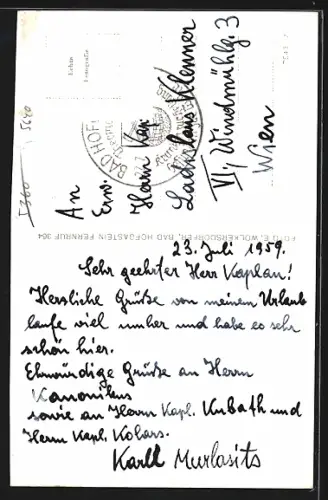 Echte
Fotografie
5360 5640
BAD HOFG
An
Erw.
Herrn Kap.
Ladislaus Klenner
VI, Windmühlg. 3
Wien
FOTO E. WOLKERSDORFER, BAD HOFGASTEIN FERNRUF 364
23. Juli 1959.
Sehr geehrter Herr Kaplan!
Herzliche Grüße von meinem Urlaub
laufe viel umher und habe es sehr
schön hier.
Ehrwürdige Grüße an Herrn
Kanonikus
sowie an Herrn Kapl. Kubath und
Herrn Kapl. Kolars.
Karl Murlasits